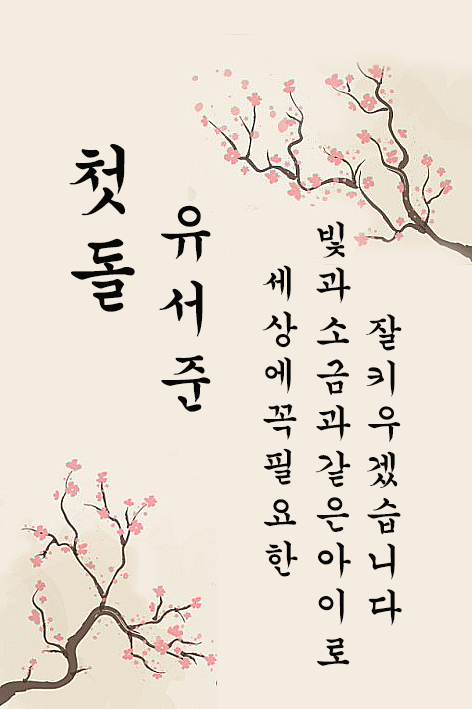 첫돌
유서준
세상에꼭필요한
빛과소금과같은아이로
잘키우겠습니다